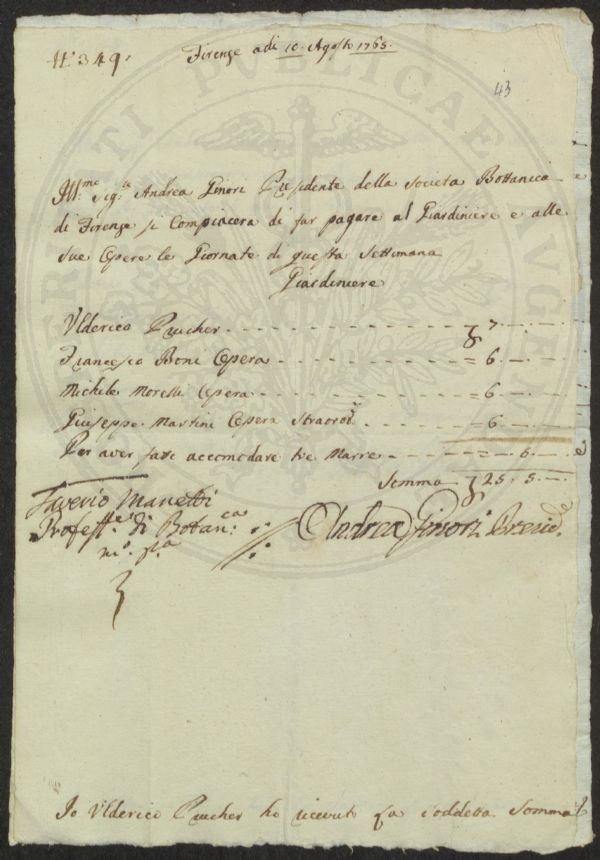 N.° 349.
Firenze adi 10. Agosto 1765.
43
Ill.mo Sig.e Andrea Ginori Presidente della Società Bottanica
di Firenze si Compiacerà di far pagare al Giardiniere e alle
sue Opere le Giornate di questa Settimana
Giardiniere
Ulderico Prucher - - - - 7. - . -
Francesco Boni Opera - - - - = 6. - . -
Michele Morelli Opera - - - - = 6. - . -
Giuseppe Martini Opera Straord. - - - - = 6. - . -
Per aver fatt accomodare tre Marre - - - - = - . 5. -
Somma 25. 5. -
Saverio Manetti
Profess.re di Botan.ca
m.o p.a
Andrea Ginori Presid.te
Io Ulderico Prucher ho ricevuto la soddetta Somma